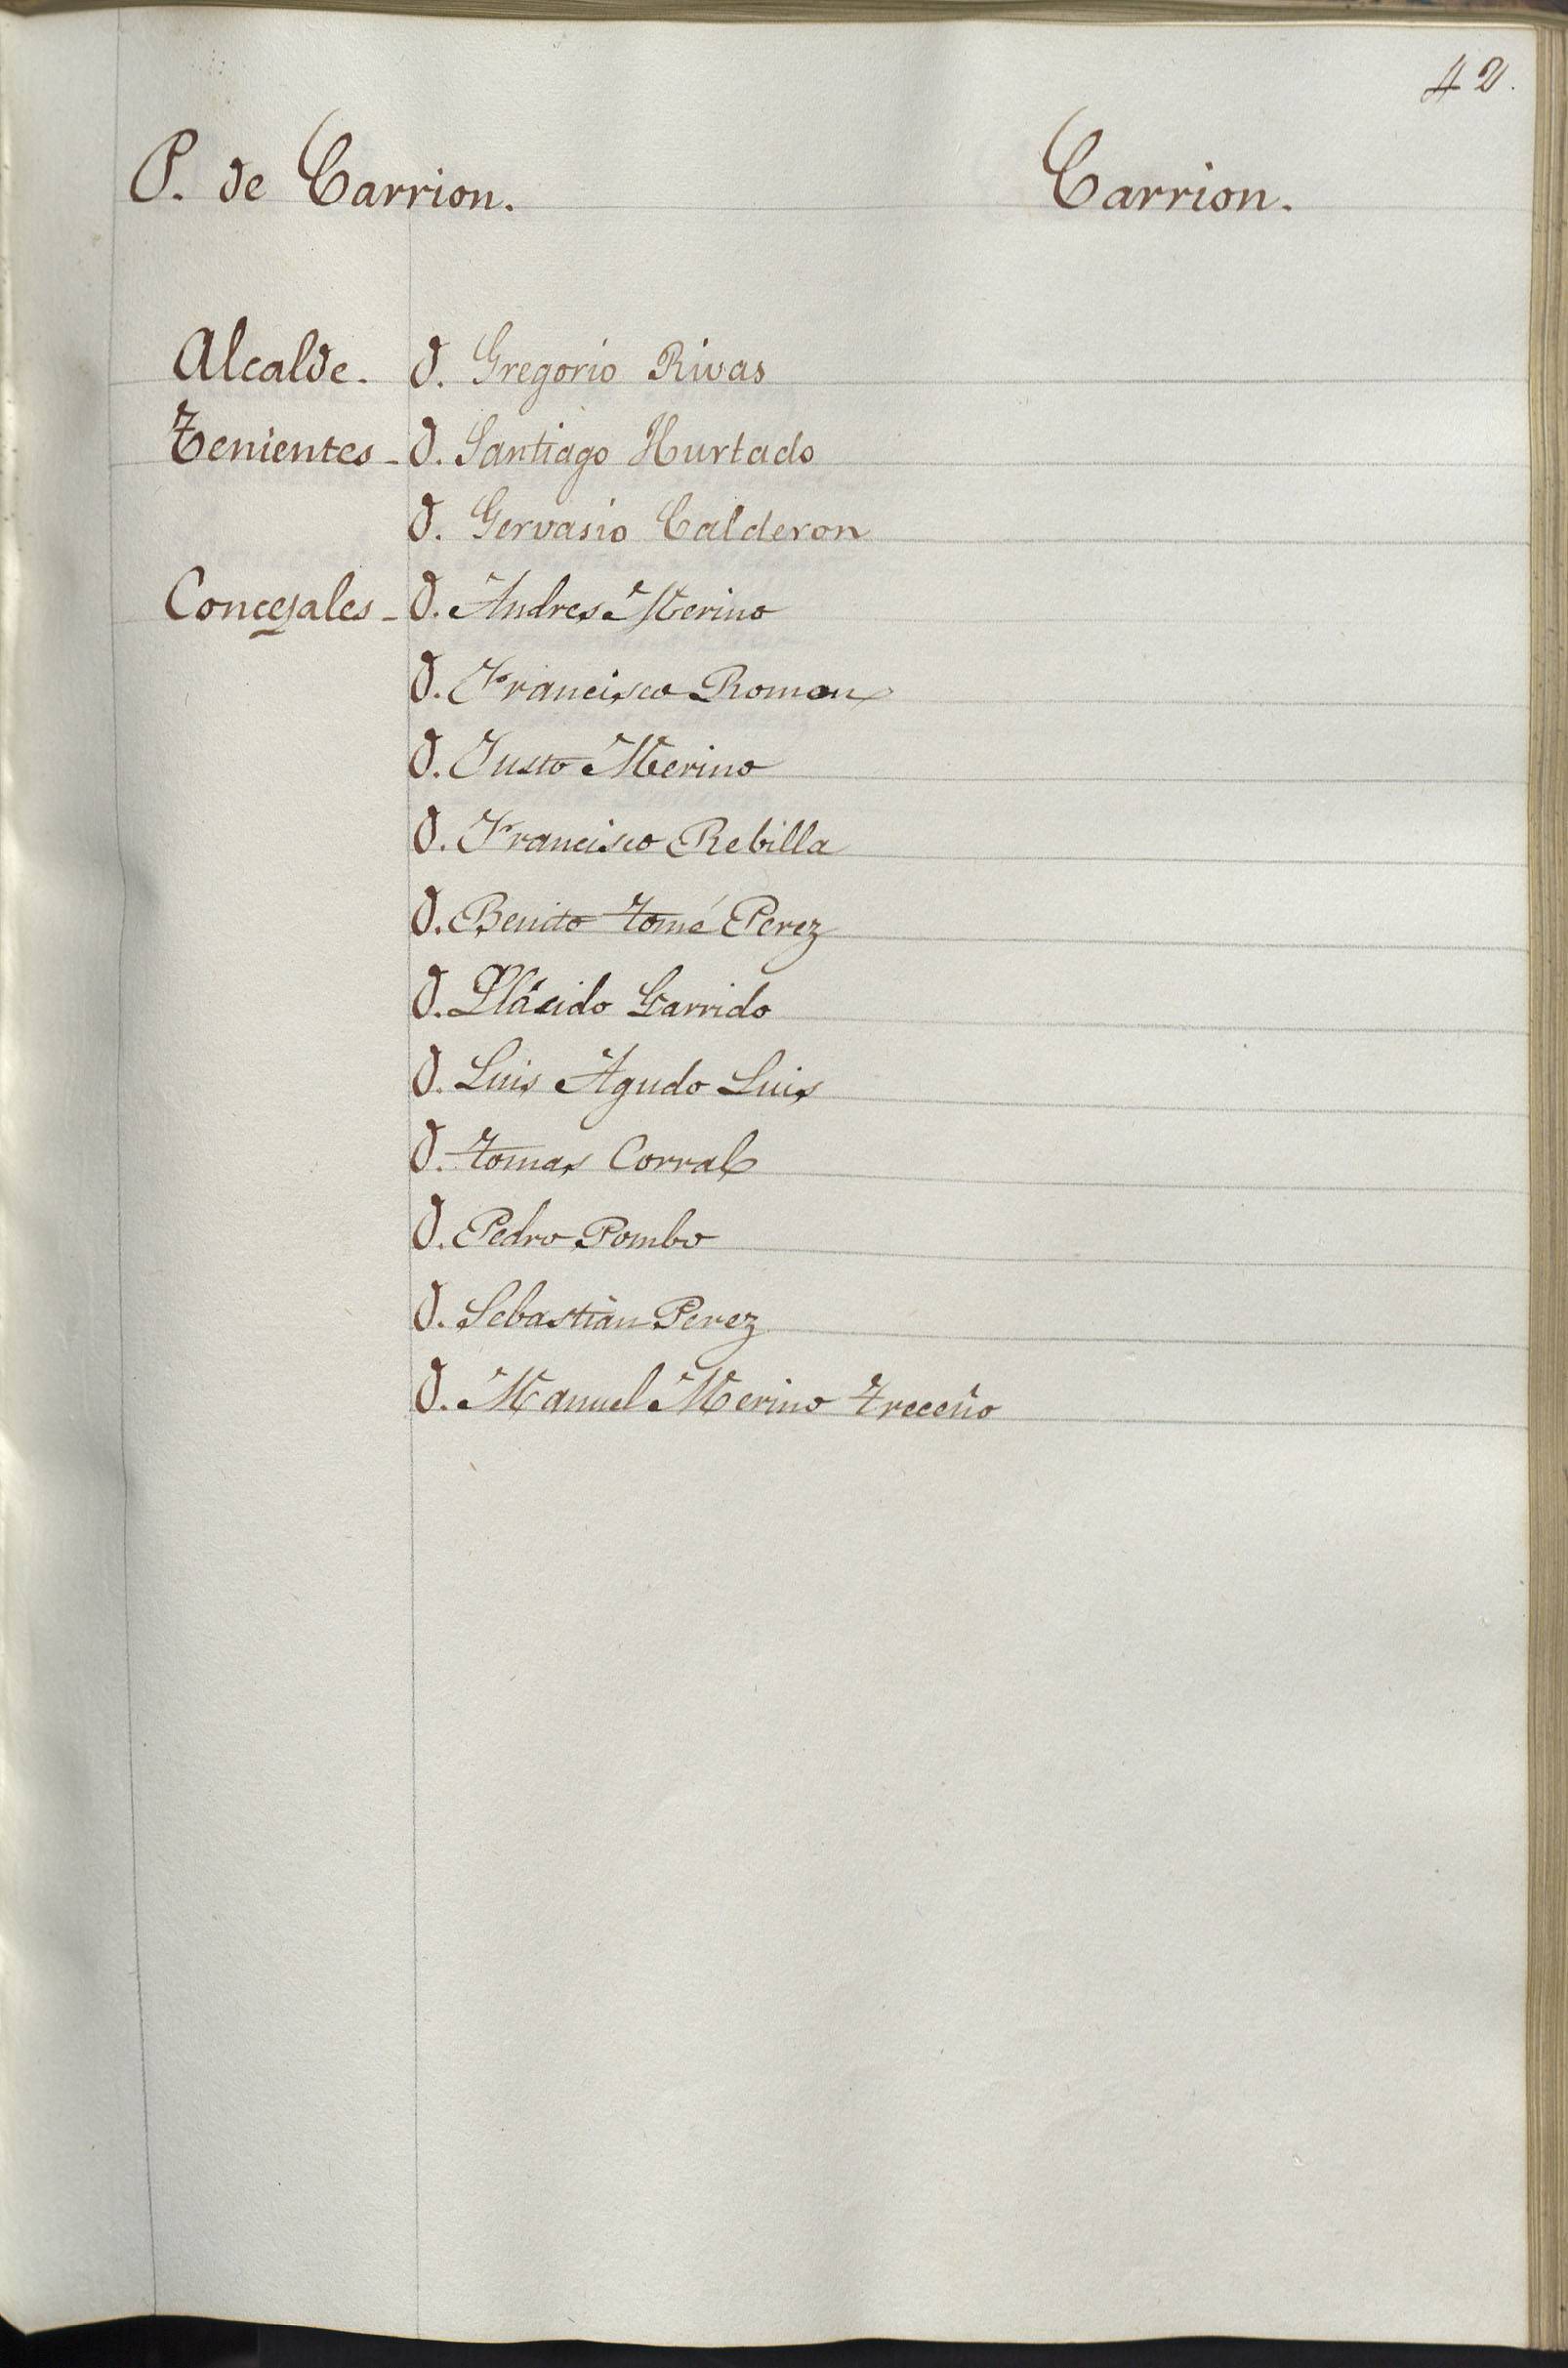 42.
P. de Carrion. Carrion.
Alcalde. D. Gregorio Rivas
Tenientes - D. Santiago Hurtado
D. Gervasio Calderon
Concejales - D. Andres Merino
D. Francisco Roman
D. Justo Merino
D. Francisco Rebilla
D. Benito Tomé Perez
D. Plácido Garrido
D. Luis Agudo Luis
D. Tomas Corral
D. Pedro Pombo
D. Sebastian Perez
D. Manuel Merino Treceño